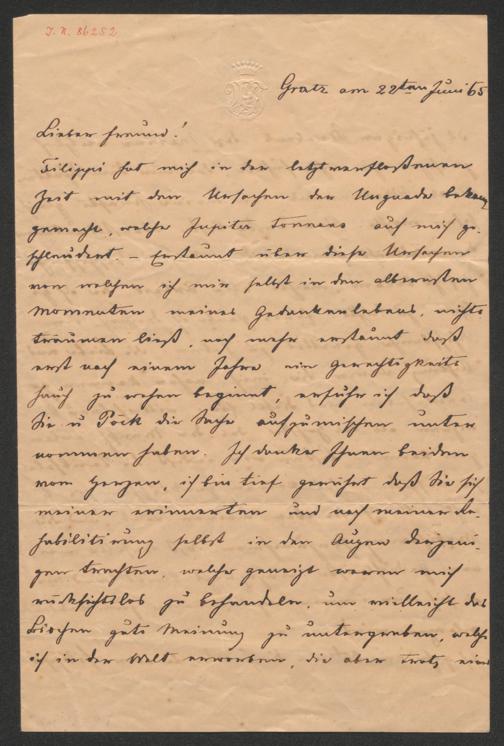 I. N. 86252
Gratz am 22ten Juni 65
Lieber Freund!
Filippi hat mich in der letztverfloßenen
Zeit mit den Ursachen der Ungnade bekannt
gemacht, welche Jupiter tonnans auf mich ge-
schleudert. – Erstaunt über diese Ursachen
von welchen ich mir selbst in den albernsten
Momenten meines Gedankenlebens, nichts
träumen ließ, noch mehr erstaunt daß
erst nach einem Jahre ein Gerechtigkeits
hauch zu wehen beginnt, erfuhr ich daß
Sie u Pöck die Sache aufzumischen unter
nommen haben. Ich danke Ihnen beiden
vom Herzen, ich bin tief gerührt daß Sie sich
meiner erinnerten und nach meiner Re-
habilitirung selbst in den Augen derjeni-
gen trachten, welche geneigt waren mich
rücksichtslos zu behandeln, um vielleicht das
Bischen gute Meinung zu untergraben, welche
ich in der Welt erworben, die aber trotz einer